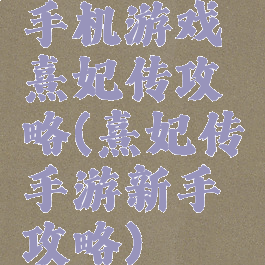 手机游戏
熹妃传攻
略(熹妃传
手游新手
攻略)